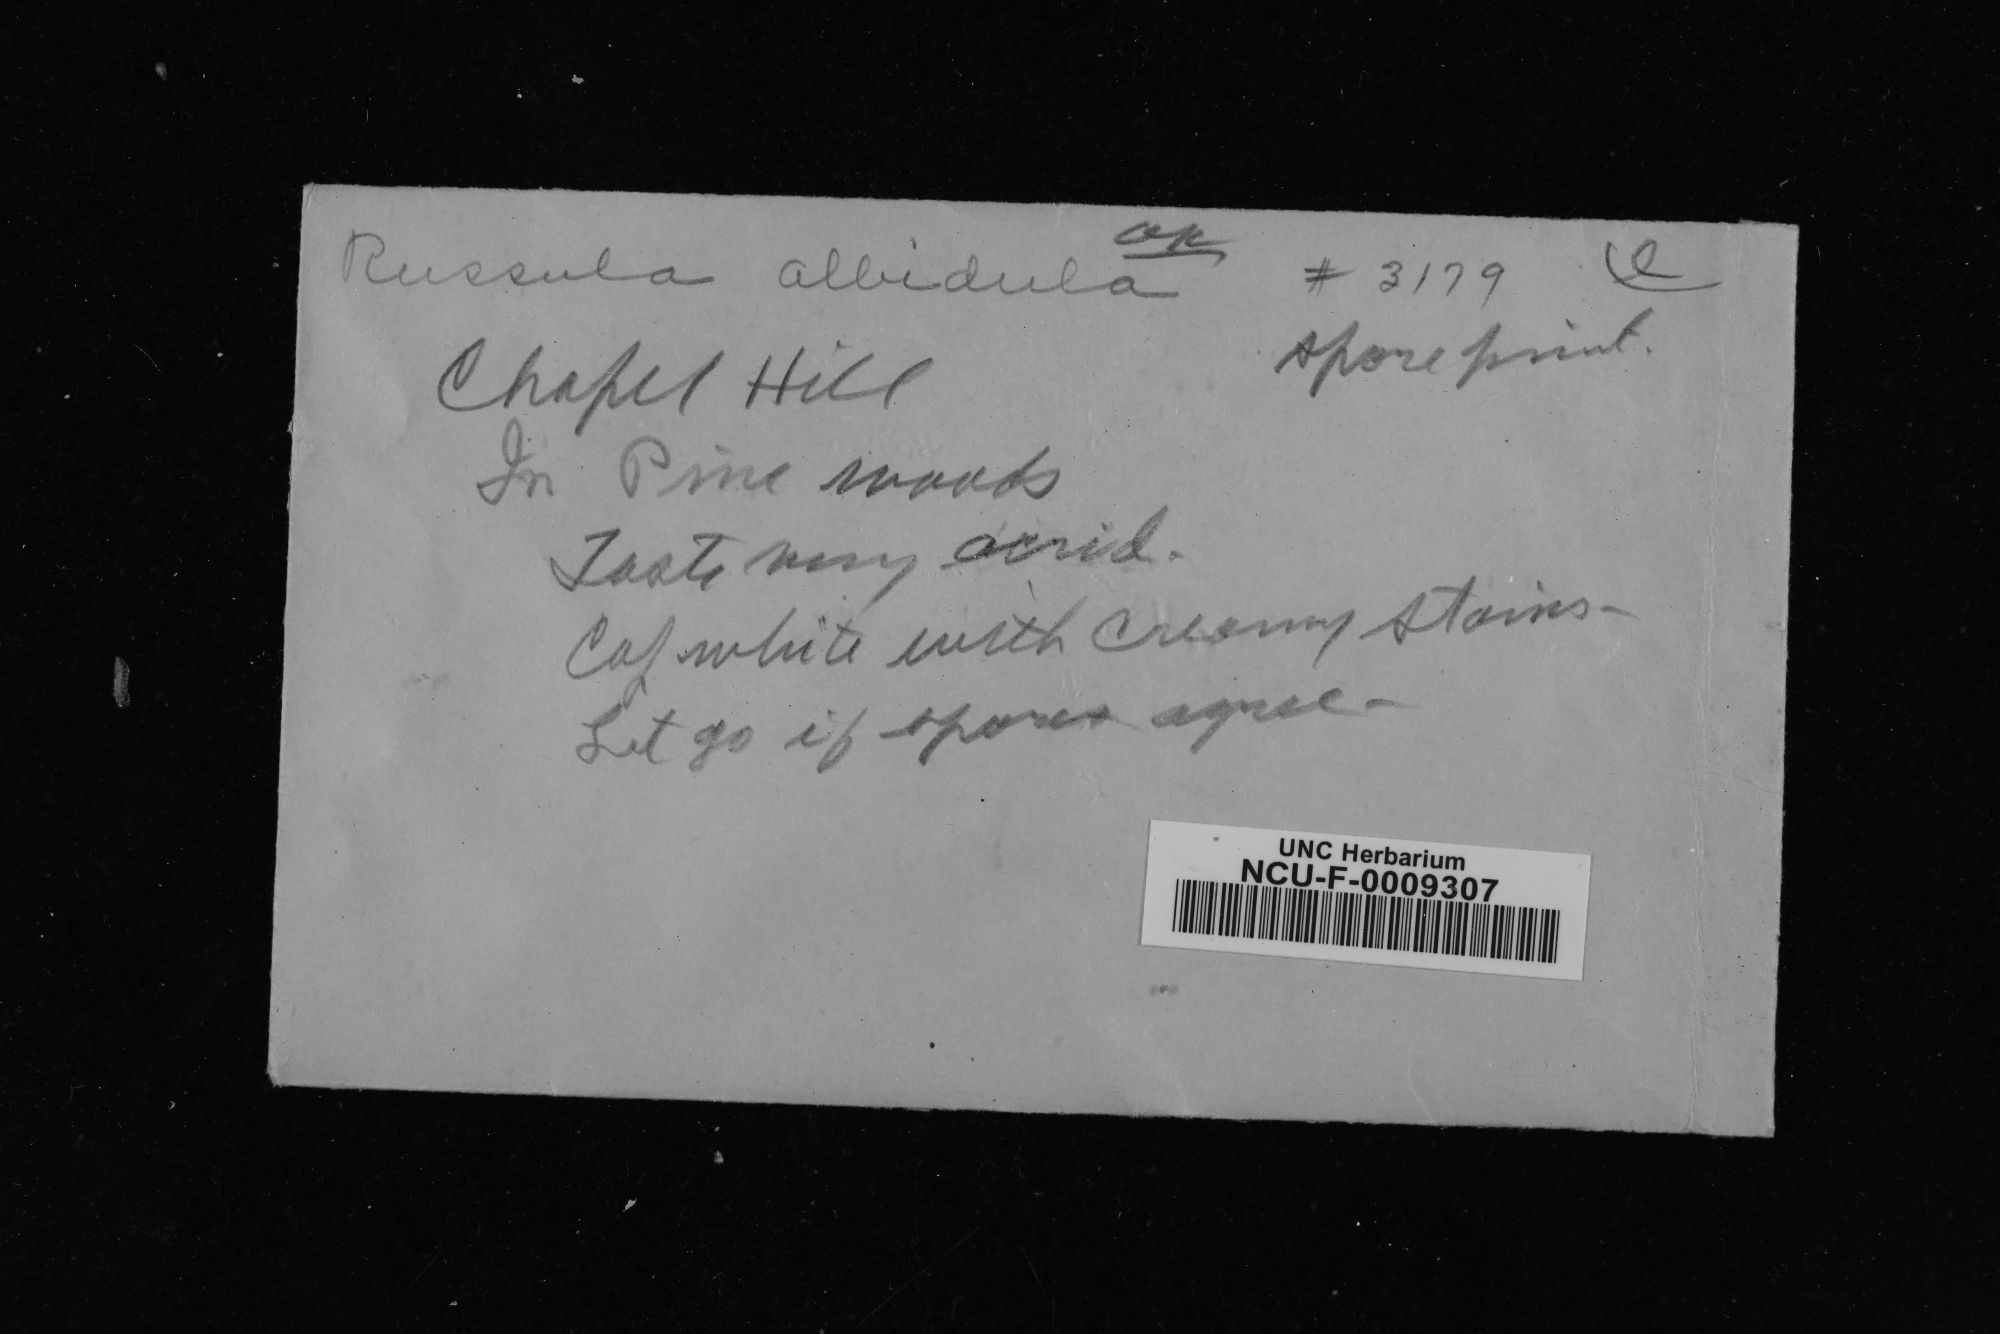 Russula albidula ok # 3179
spore print.
Chapel Hill
In Pine woods
Taste very acrid.
Cap white with creamy stains-
Let go if spores agree-
UNC Herbarium
NCU-F-0009307